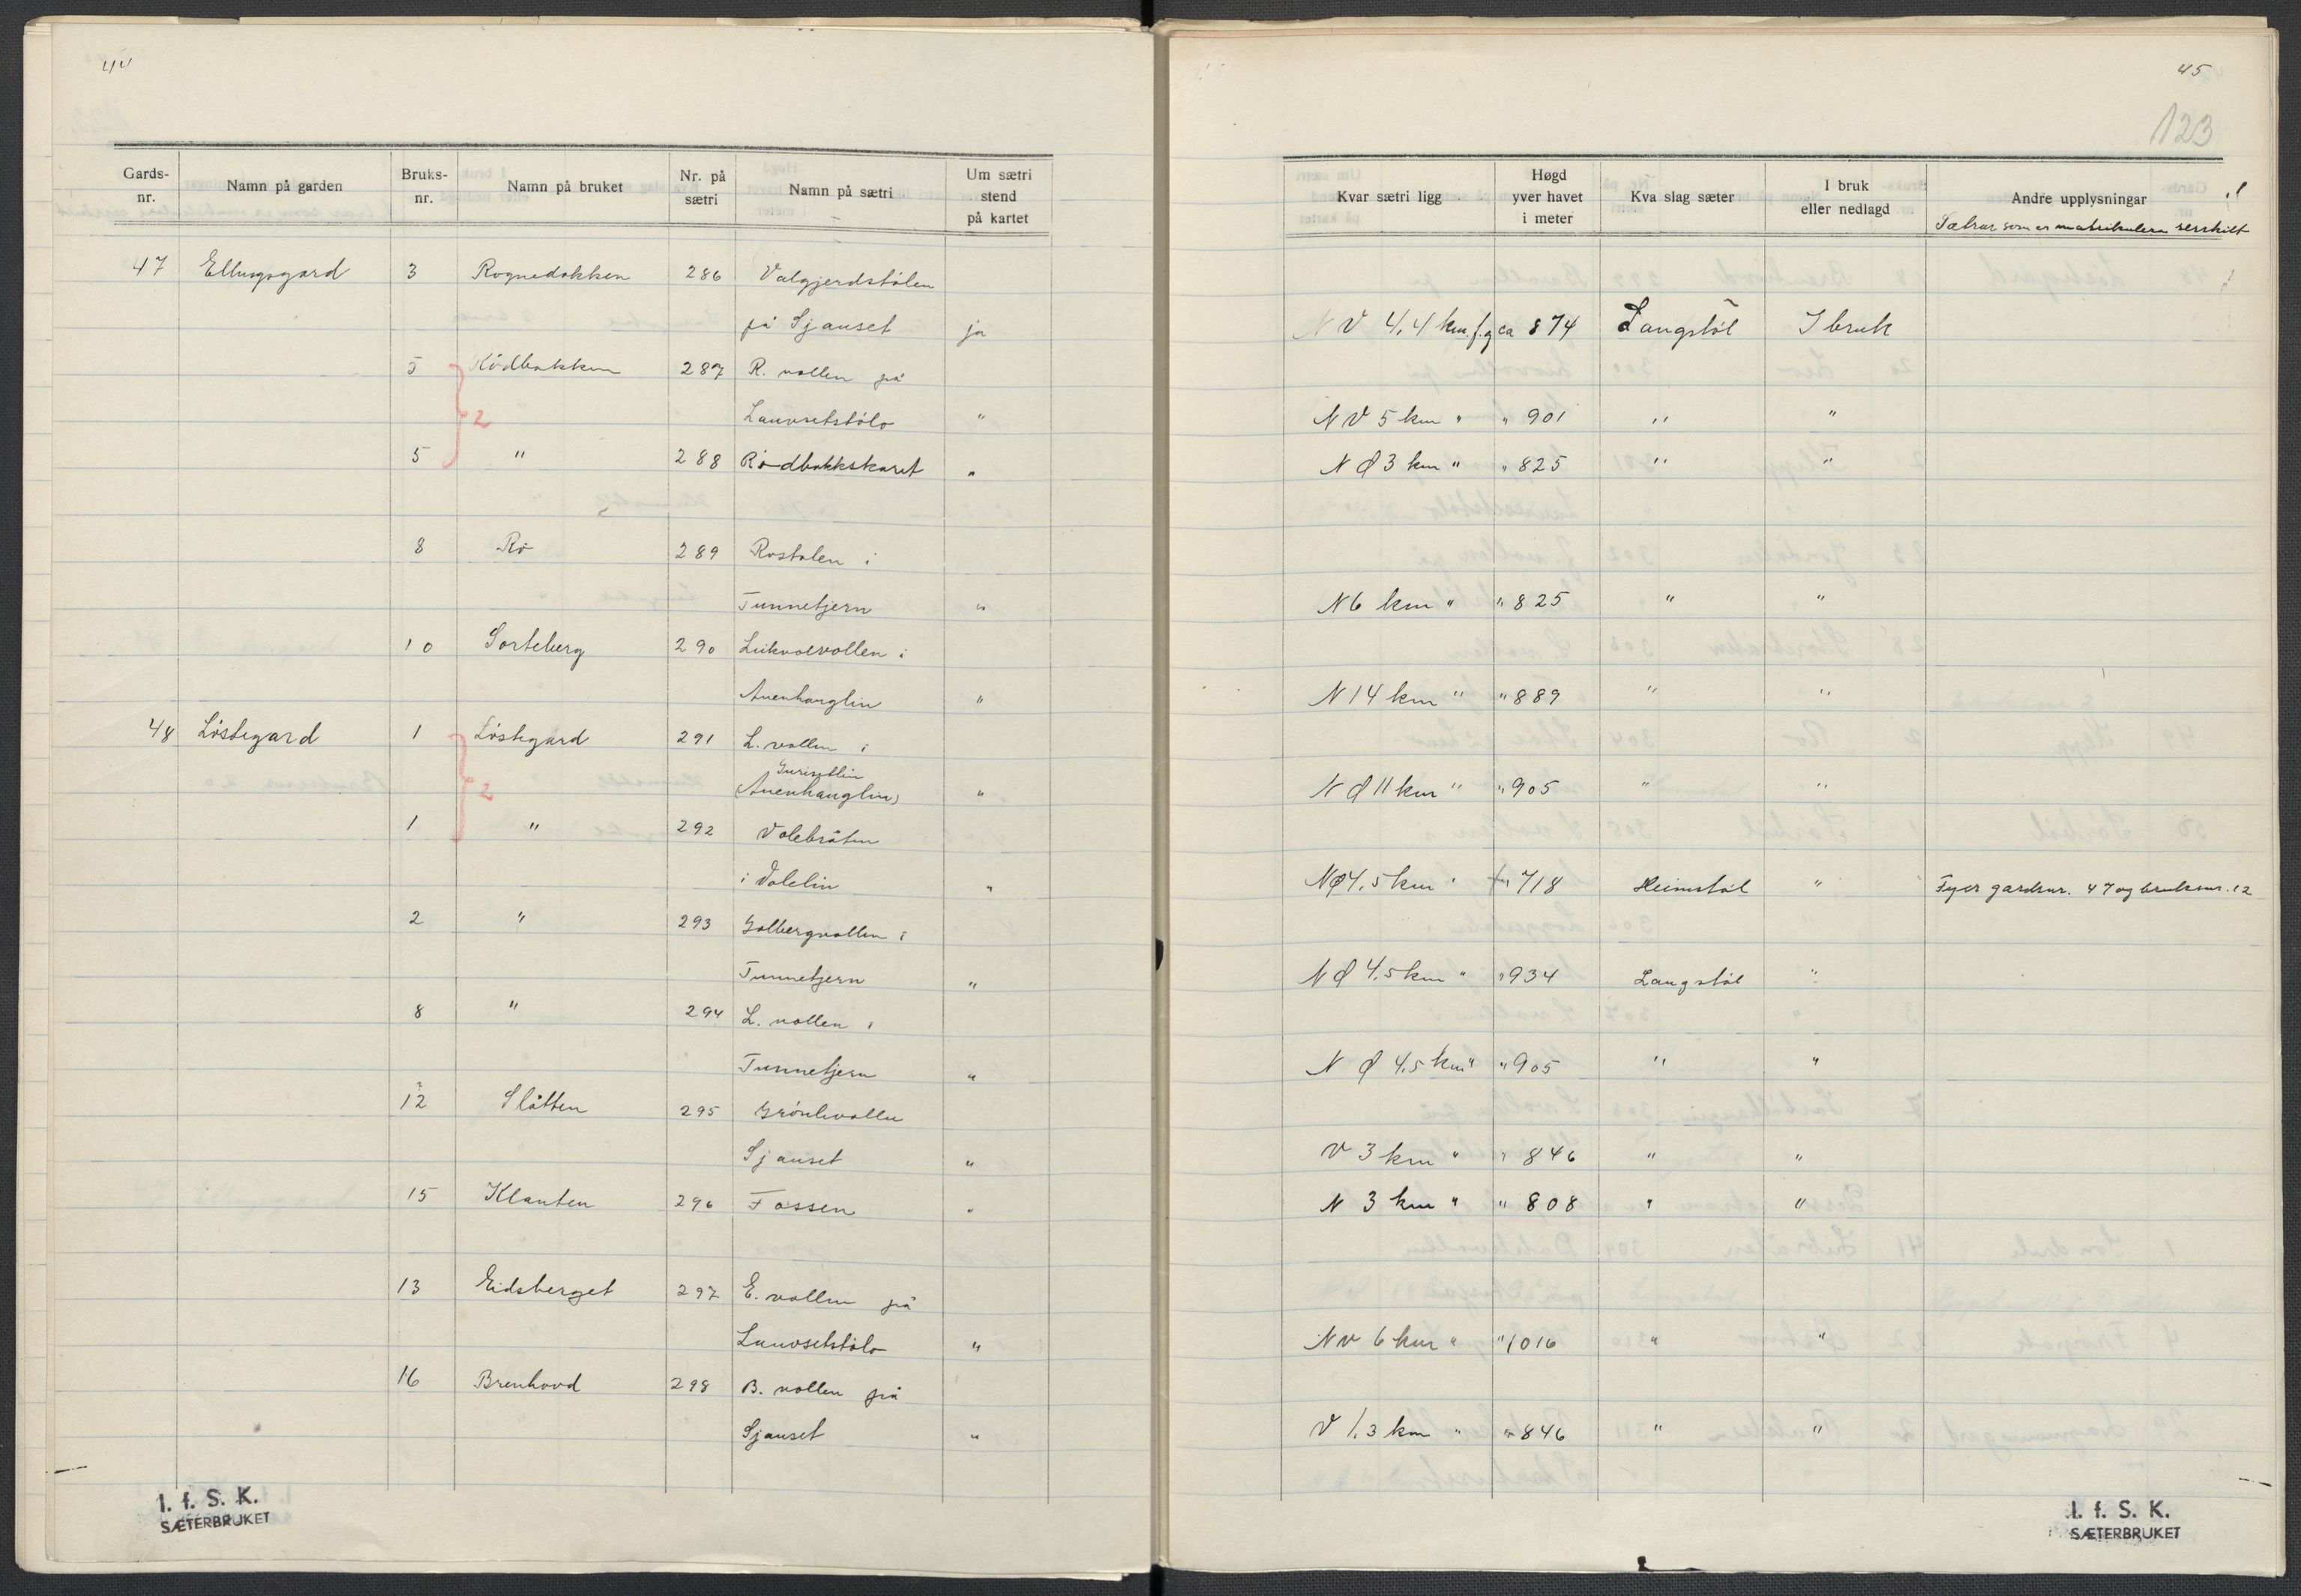 44
Gards-nr. Namn på garden Bruks-nr. Namn på bruket Nr. på sætri Namn på sætri Um sætri stend på kartet
47 Ellingsgard 3 Rognedokken 286 Valgjerdstölen
på Sjauset ja
5 Rödbakken 287 R. vollen på
Lauvsetstölo "
2
5 " 288 Rödbakkskaret "
8 Ro 289 Rostolen i
Tunnetjern "
10 Sorteberg 290 Leikvollvollen i
Auenhauglin "
48 Löstegard 1 Löstegard 291 L. vollen i
Gurisetlin
(Auenhauglin) "
2
1 " 292 Volebråten
i Volelin "
2 " 293 Golbergvollen i
Tunnetjern "
8 " 294 L. vollen i
Tunnetjern "
12 Slåtten 295 Grönlivollen
Sjauset "
15 Klanten 296 Fossen "
13 Eidsberget 297 E. vollen på
Lauvsetstölo "
16 Brenhovd 298 B. vollen på
Sjauset "
I. f. S. K.
SÆTERBRUKET
45
123
Kvar sætri ligg Høgd yver havet i meter Kva slag sæter I bruk eller nedlagd Andre upplysningar
Sætrar som er matrikulera serskilt
NV 4,4 km. f. g ca 874 Langstöl I bruk
NV 5 km " " 901 " "
NØ 3 km " " 825 " "
N 6 km " " 825 " "
N 14 km " " 889 " "
NØ 11 km " " 905 " "
NØ 4,5 km " 718 Heimstöl " Fyer gardsnr. 47 og bruksnr. 12
NØ 4,5 km " " 934 Langstöl "
NØ 4,5 km " " 905 " "
V 3 km " " 846 " "
N 3 km " " 808 " "
NV 6 km " " 1016 " "
V 1,3 km " " 846 " "
I. f. S. K.
SÆTERBRUKET